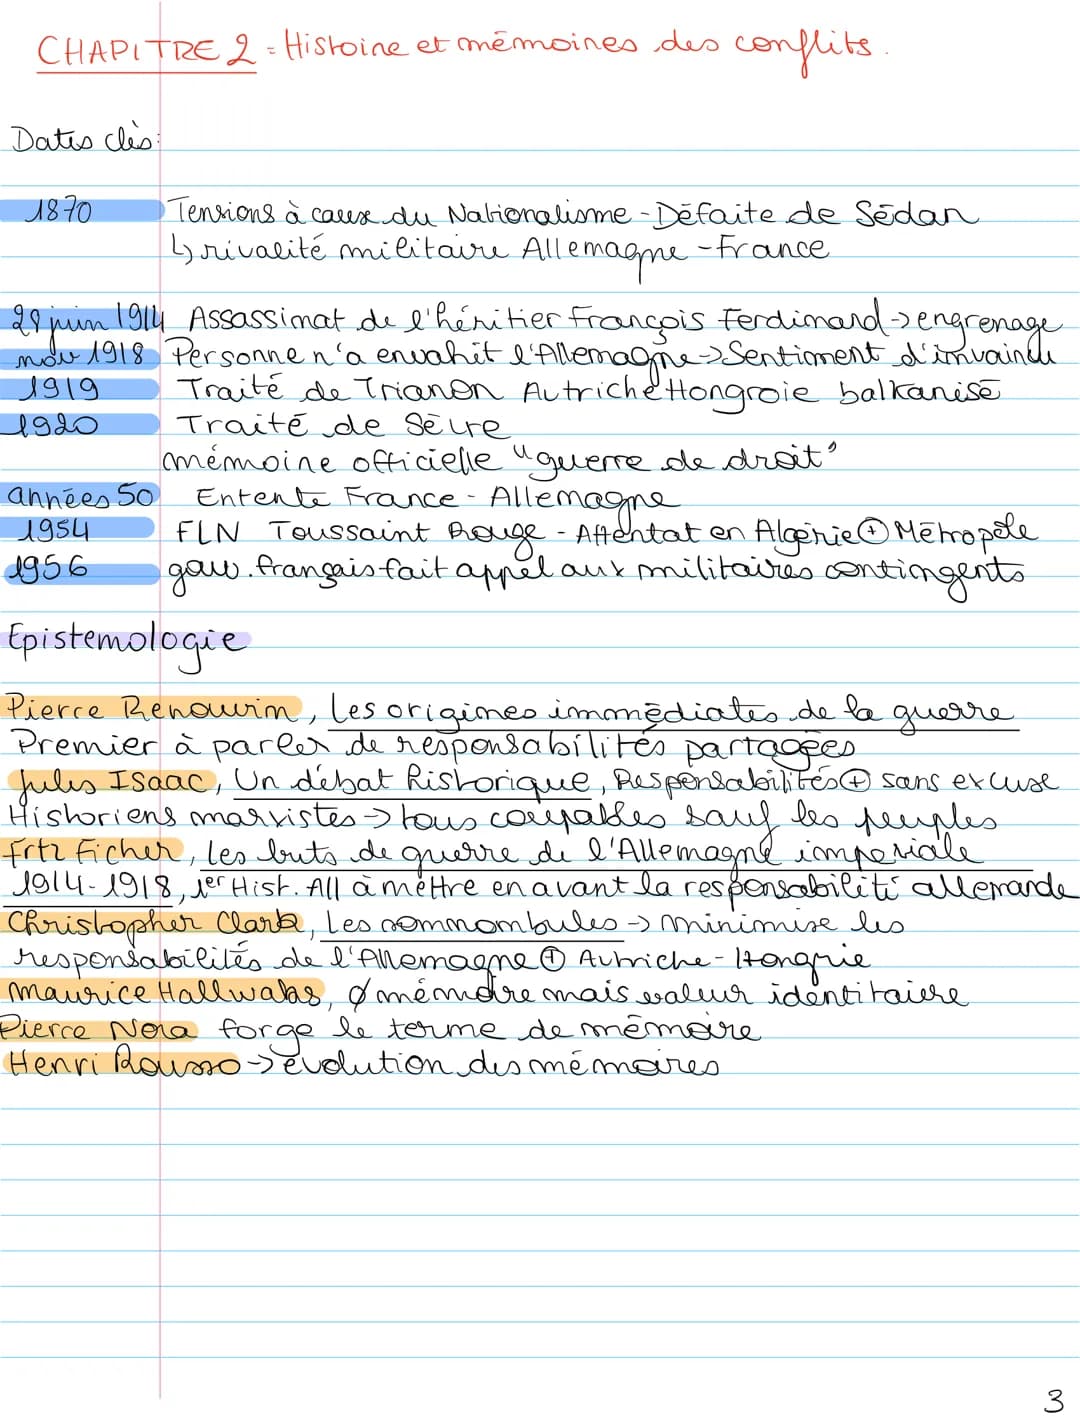 CHAPITRE 2 = Histoire et mémoires des conflits.
Dates clès:
1870 Tensions à cause du Nationalisme - Défaite de Sédan
↳ rivalité militaire Allemagne - France
28 juin 1914 Assassinat de l'héritier François Ferdinand -> engrenage
nov 1918 Personne n'a envahit l'Allemagne -> Sentiment d'invaincu
1919 Traité de Trianon Autriche Hongroie balkanisé
1920 Traité de Sèvre
mémoire officielle "guerre de droit"
années 50 Entente France - Allemagne
1954 FLN Toussaint Rouge - Attentat en Algérie ⊕ Métropole
1956 gouv. français fait appel aux militaires contingents
Epistemologie
Pierre Renouvin, Les origines immédiates de la guerre
Premier à parler de responsabilités partagées
Jules Isaac, Un débat historique, Responsabilités ⊕ sans excuse
Historiens marxistes -> tous coupables sauf les peuples
Frtz Ficher, Les buts de guerre de l'Allemagne impériale
1914-1918, 1er Hist. All à mettre en avant la responsabilité allemande
Christopher Clark, Les somnombules -> minimise les
responsabilités de l'Allemagne ⊕ Autriche-Hongrie
Maurice Hallwabs, Ø mémoire mais valeur identitaire
Pierre Nora forge le terme de mémoire
Henri Rousso -> évolution des mémoires
3